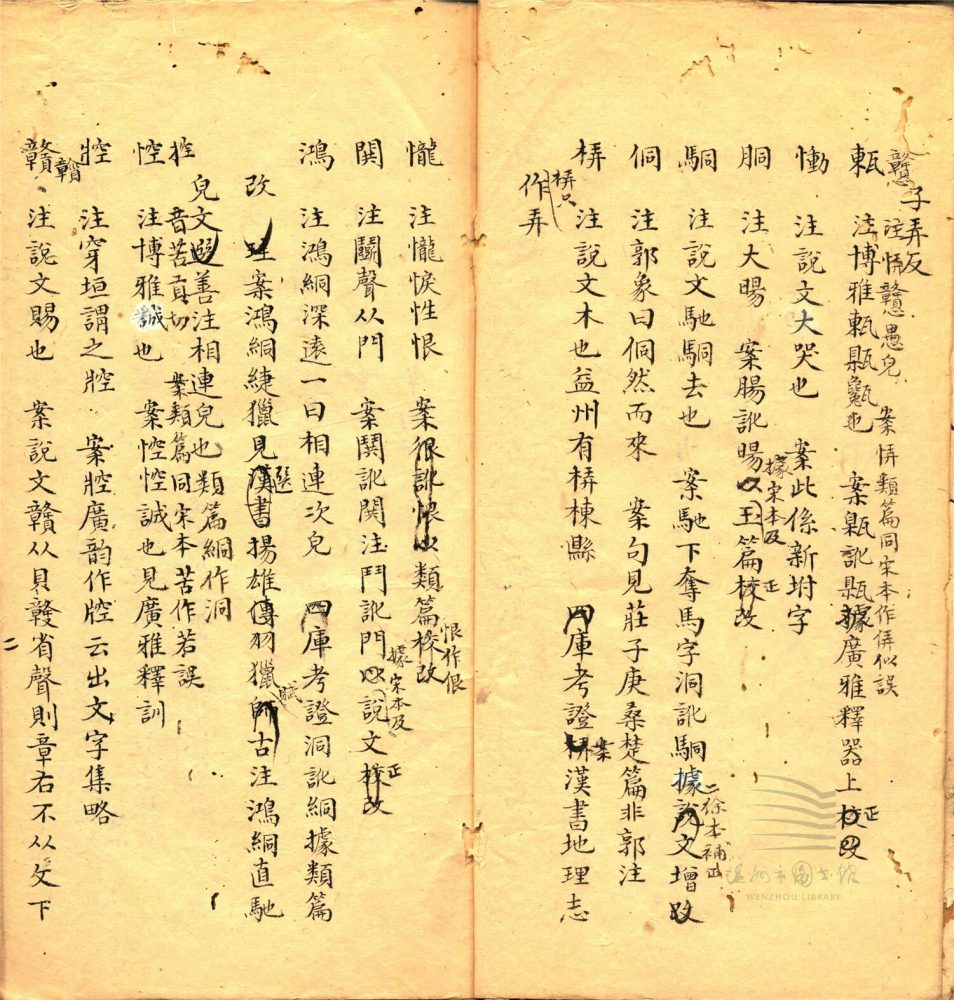 戇 子弄反
注悀戇愚皃 案悀類篇同宋本作倂似誤
㼯 注博雅㼯㽄甈也 案㽄訛㼯據廣雅釋器上校改 正
慟 注說文大哭也 案此係新坿字
胴 注大腸 案腸訛暘以玉篇校改 據宋本及 正
駧 注說文馳駧去也 案馳下奪馬字洞訛駧據說文增改 二徐本補正
侗 注郭象曰侗然而來 案句見莊子庚桑楚篇非郭注
梇 注說文木也益州有梇棟縣 四庫考證梇漢書地理志 案
作弄
梇只
㦕 注㦕悷性恨 案很訛恨以類篇校改 恨作佷
鬨 注鬭聲从門 案鬨訛閧注鬥訛門以說文校改 據宋本及 正
鴻 注鴻絧深遠一曰相連次皃 四庫考證洞訛絧據類篇
改 案鴻絧緁獵見漢書揚雄傳羽獵師古注鴻絧直馳 選 賦
皃文選善注相連皃也類篇絧作洞
控 音苦貢切 案類篇同宋本苦作若誤
悾 注博雅誠也 案悾悾誠也見廣雅釋訓
㸜 注穿垣謂之㸜 案㸜廣韵作腔云出文字集略
贛 注說文賜也 案說文贛从貝竷省聲則章右不从夂下
贑
二
瓯州市图书馆
WENZHOU LIBRARY